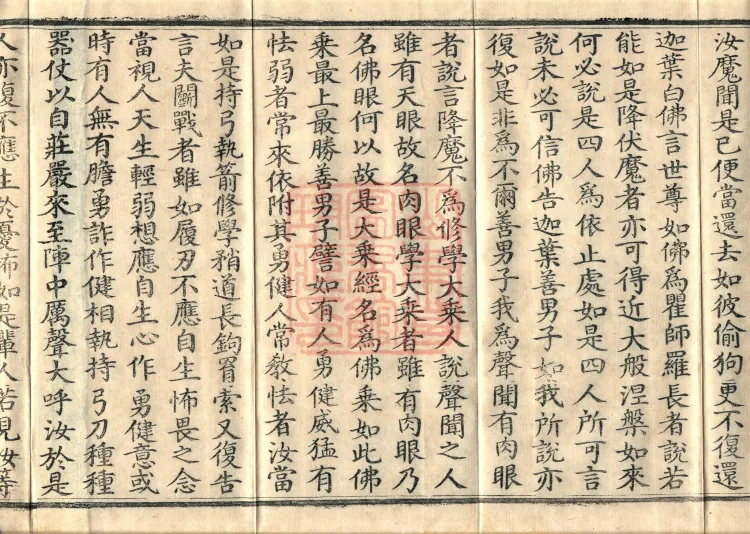 汝魔聞是已便當還去如彼偷狗更不復還
迦葉白佛言世尊如佛爲瞿師羅長者說若
能如是降伏魔者亦可得近大般涅槃如來
何必說是四人爲依止處如是四人所可言
說未必可信佛告迦葉善男子如我所說亦
復如是非爲不爾善男子我爲聲聞有肉眼
者說言降魔不爲修學大乘人說聲聞之人
雖有天眼故名肉眼學大乘者雖有肉眼乃
名佛眼何以故是大乘經名爲佛乘如此佛
乘最上最勝善男子譬如有人勇健威猛有
怯弱者常來依附其勇健人常教怯者汝當
如是持弓執箭修學矟道長鉤罥索又復告
言夫鬬戰者雖如履刃不應自生怖畏之念
當視人天生輕弱想應自生心作勇健意或
時有人無有膽勇詐作健相執持弓刀種種
器仗以自莊嚴來至陣中厲聲大呼汝於是
人亦復不應生於憂怖如是輩人若見汝等